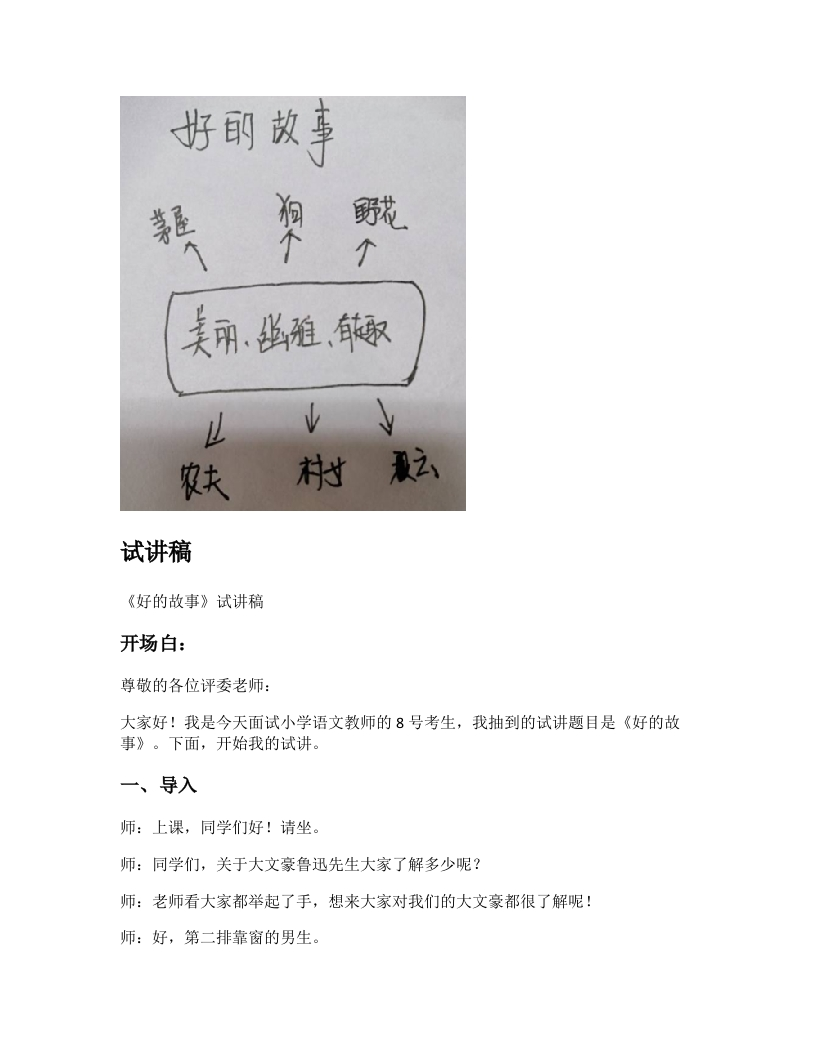 好的故事
茅屋 狗 野花
美丽、幽雅、有趣
农夫 村女 夏云
试讲稿
《好的故事》试讲稿
开场白：
尊敬的各位评委老师：
大家好！我是今天面试小学语文教师的 8 号考生，我抽到的试讲题目是《好的故
事》。下面，开始我的试讲。
一、导入
师：上课，同学们好！请坐。
师：同学们，关于大文豪鲁迅先生大家了解多少呢？
师：老师看大家都举起了手，想来大家对我们的大文豪都很了解呢！
师：好，第二排靠窗的男生。